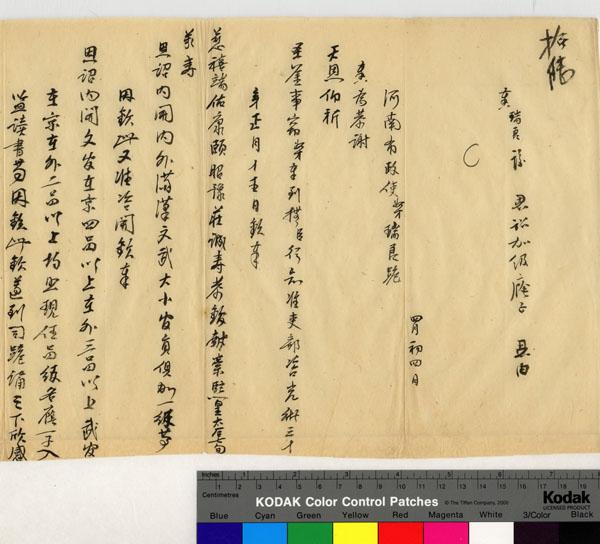 奏瑞良謝 恩詔加級廕子 恩由
四月初四日
河南布政使奴才瑞良跪
奏為恭謝
天恩仰祈
聖鑒事竊奴才承准吏部咨光緒三十
年正月十五日欽奉
慈禧端佑康頤昭豫莊誠壽恭欽獻崇熙皇太后旬
萬壽
恩詔內開內外滿漢文武大小官員俱加一級等
因欽此又准咨開欽奉
恩詔內開文官在京四品以上在外三品以上武官
在京在外二品以上均照現任品級各廕一子入
監讀書等因欽此欽遵到司跪誦之下欣感
Inches 1 2 3 4 5 6 7 8
Centimetres
KODAK Color Control Patches © The Tiffen Company, 2000
Kodak
LICENSED PRODUCT
Blue Cyan Green Yellow Red Magenta White 3/Color Black